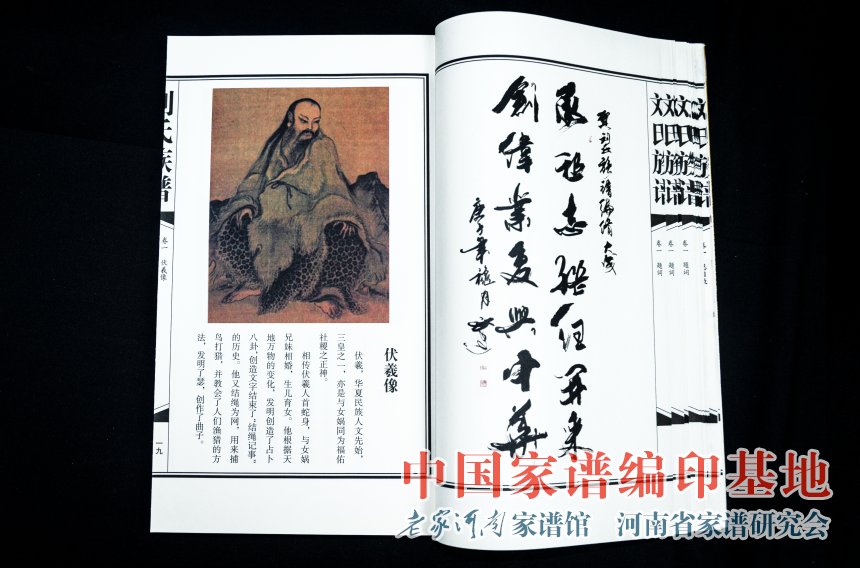 贺刘氏族谱编修大成
承祖志继往开来
創偉業复興中華
庚子年
伏羲像
伏羲,华夏民族人文先始,
三皇之一,亦是与女娲同为福佑
社稷之正神。
相传伏羲人首蛇身,与女娲
兄妹相婚,生儿育女。他根据天
地万物的变化,发明创造了占卜
八卦,创造文字结束了“结绳记事”
的历史。他又结绳为网,用来捕
鸟打猎,并教会了人们渔猎的方
法,发明了瑟,创作了曲子。
氏族谱
卷一 伏羲像
一九
卷一 题词
卷一 题词
卷一 题词
中国家谱编印基地
老家河南家谱馆 河南省家谱研究会